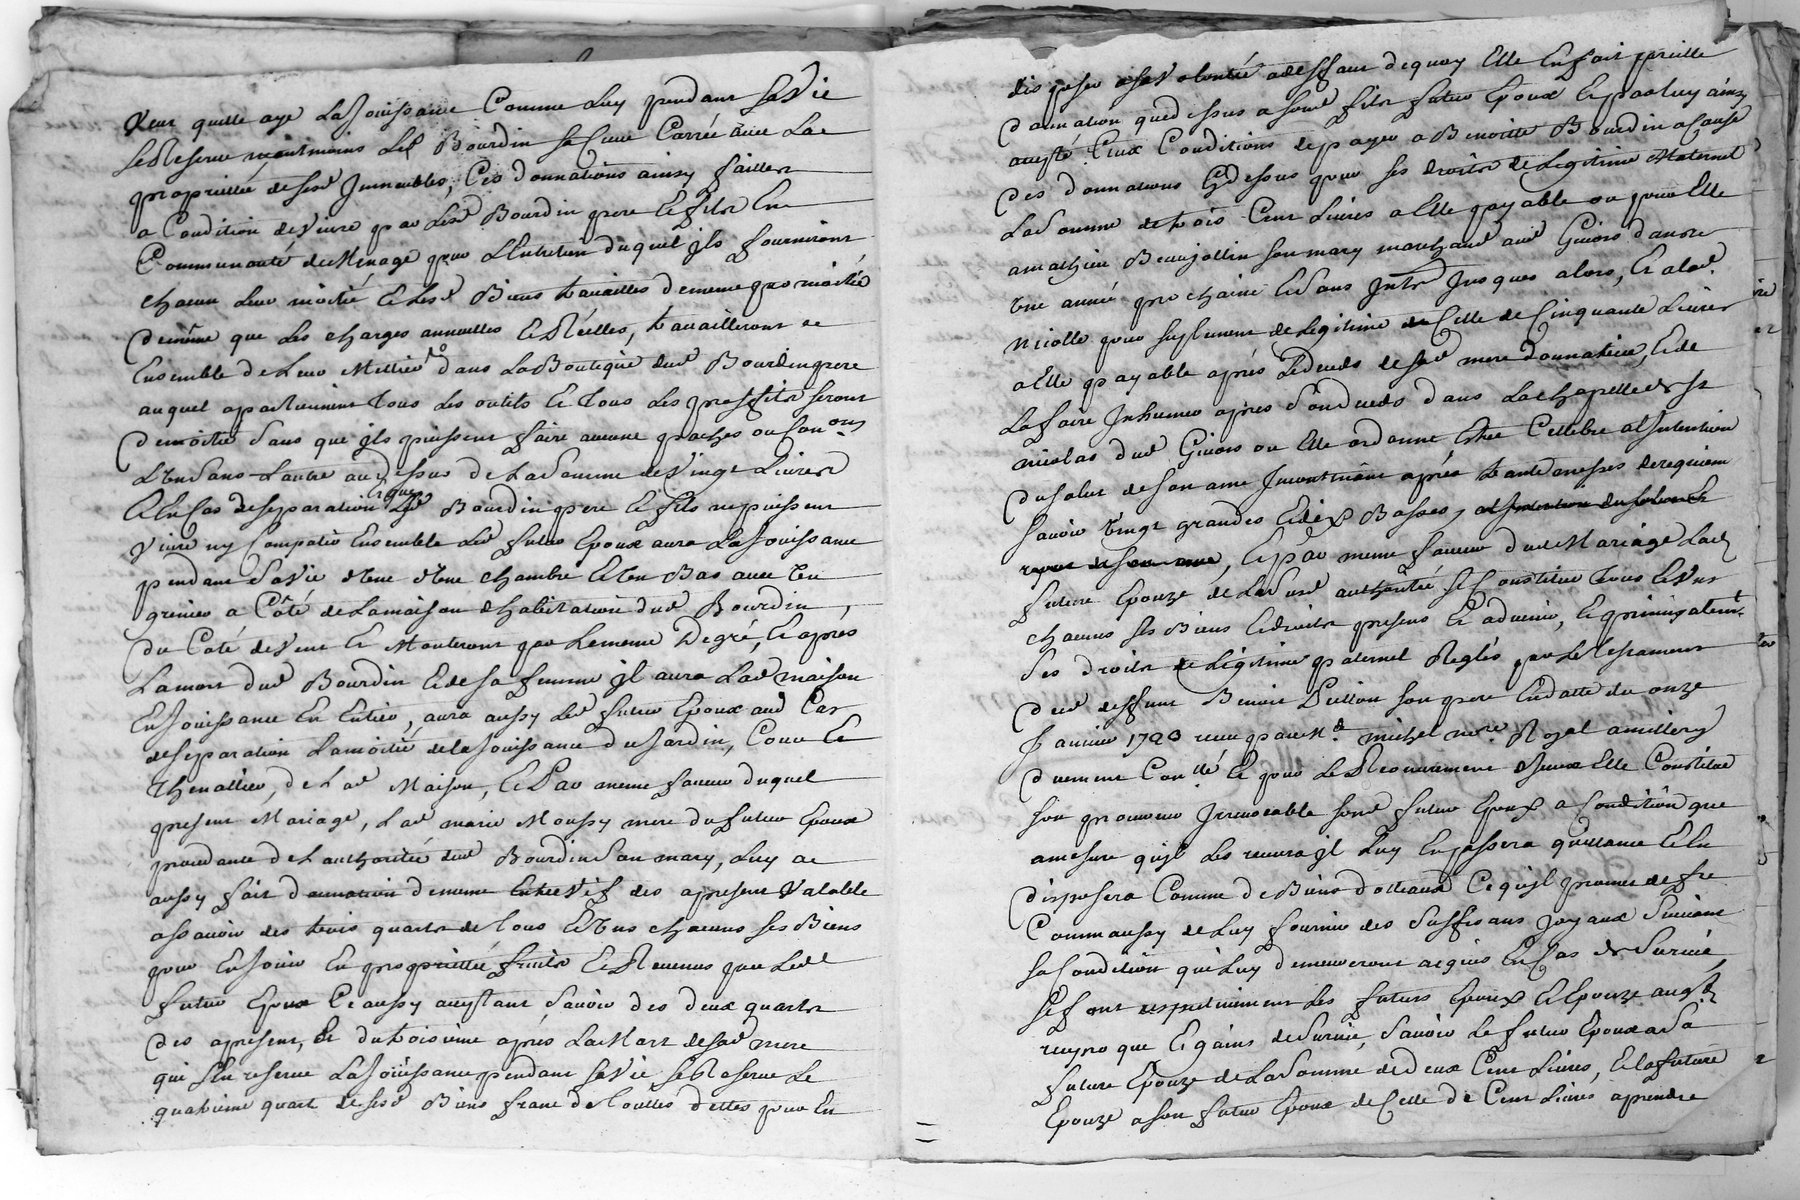 Veut quelle aye La Joüissance Comme Luy pendant Sa Vie
Se Reserve neantmoins Led Bourdin Sa Cuve Carrée avec La
proprietté de Sesd Jmmeubles, Ces donnations ainsy faittes
a Condition de vivre par Lesd Bourdin pere Et fils En
Communauté de Menage pour L'Entretien duquel jls fourniront
chacun Leur moitié Et Lesd Biens travailles de meme par moitié
De même que Les charges annuelles Et Réelles, travailleront
Ensemble de Leur Mettier dans La Boutique dud Bourdin pere
auquel apartiennent tous Les outils Et tous Les proffits Seront
De moitié Sans que jls puissent faire aucune
L'un Sans Lautre au dessus de La Somme de Vingt Livres
Et En Cas de Separation que Lesd Bourdin pere Et fils ne puissent
Vivre ny Compatir Ensemble Led futur Epoux aura La Joüissance
pendant Sa Vie d'une chambre Et Un Bas avec Un
grenier a Côté de La maison d'habitation dud Bourdin,
Du Coté de Vent Et Monteront par Le meme Degré, Et après
La mort dud Bourdin Et de Sa femme jl aura Lad maison
En Joüissance En Entier, aura aussy Led futur Epoux aud Cas
de Separation La moitié de la Joüissance du Jardin, Cour Et
de Lad Maison, Et Par meme faveur duquel
present Mariage, Lad marie Moussy mere du futur Epoux
procedante de L'authorité dud Bourdin Son mary, Luy a
aussy fait donnation de meme Entre Vif des apresent Valable
assavoir des trois quarts de tous Et Uns chacuns Ses Biens
pour En Joüir En proprietté fruits Et Revenus par Led
futur Epoux Et aussy acceptant, Savoir des deux quarts
Des apresent, Et du troisieme après La Mort de Sad mere
qui S'En reserve La Joüissance pendant Sa Vie Se Reserve Le
quatrieme quart de Sesd Biens franc de touttes dettes pour En
disposer a Sa Volonté a deffaut de quoy Elle En fait pareille
Donnation que dessus a Sond fils futur Epoux Et par Luy ainsy
accepté Ceux Conditions de payer a Benoitte Bourdin a Cause
Des donnations Cy dessus pour Ses droits de Legitime Maternel
La Somme de trois Cent Livres a Elle payable ou pour Elle
a mathieu Beaujollin Son mary marchand aud Givors dans
Une année prochaine Et Sans Jnts Jusques alors, Et a lad
nicolle pour Suplement de Legitime de Celle de Cinquante Livres
a Elle payable après Le deceds de Sad mere donnatrice, Et de
La faire Jnhumer apres Son deceds dans La Chapelle de St
nicolas dud Givors ou Elle ordonne Estre Cellebré a L'Jntention
Du Salut de Son ame Jncontinant après trante messes de requiem
Savoir Vingt grandes Et dix Basses, a L'Jntention du Salut Et
repos de Son ame, Et par meme faveur dud Mariage Lad
future Epouze de L'avis authorité Se Constitue tous Et Uns
chacuns Ses Biens Et droits presens Et advenir, Et principalemt
Ses droits de Légitime paternel Reglés par Le Testament
Dud deffunt Benoit Son pere En datte du onze
Janvier 1723 reçu par Me michel nore Royal a millery
Duement Conllé Et pour Le Recouvrement d'Jceux Elle Constitue
Son procureur Jrrevocable Sond futur Epoux a Condition que
a mesure qu'jl Les recevra jl Luy En passera quittance Et En
Disposera Comme de Biens dotteaux Ce qu'jl promet de fre
Comm aussy de Luy fournir des Suffisans Joyaux Suivant
Sa Condition qui Luy demeureront acquis En Cas de Survie,
Se font respectivement Les futurs Epoux Et Epouze augt
reciproque Et gains de Survie, Savoir Le futur Epoux a Sa
future Epouze de La Somme de deux Cent Livres, Et La future
Epouze a Son futur Epoux de Celle de Cent Livres a prendre